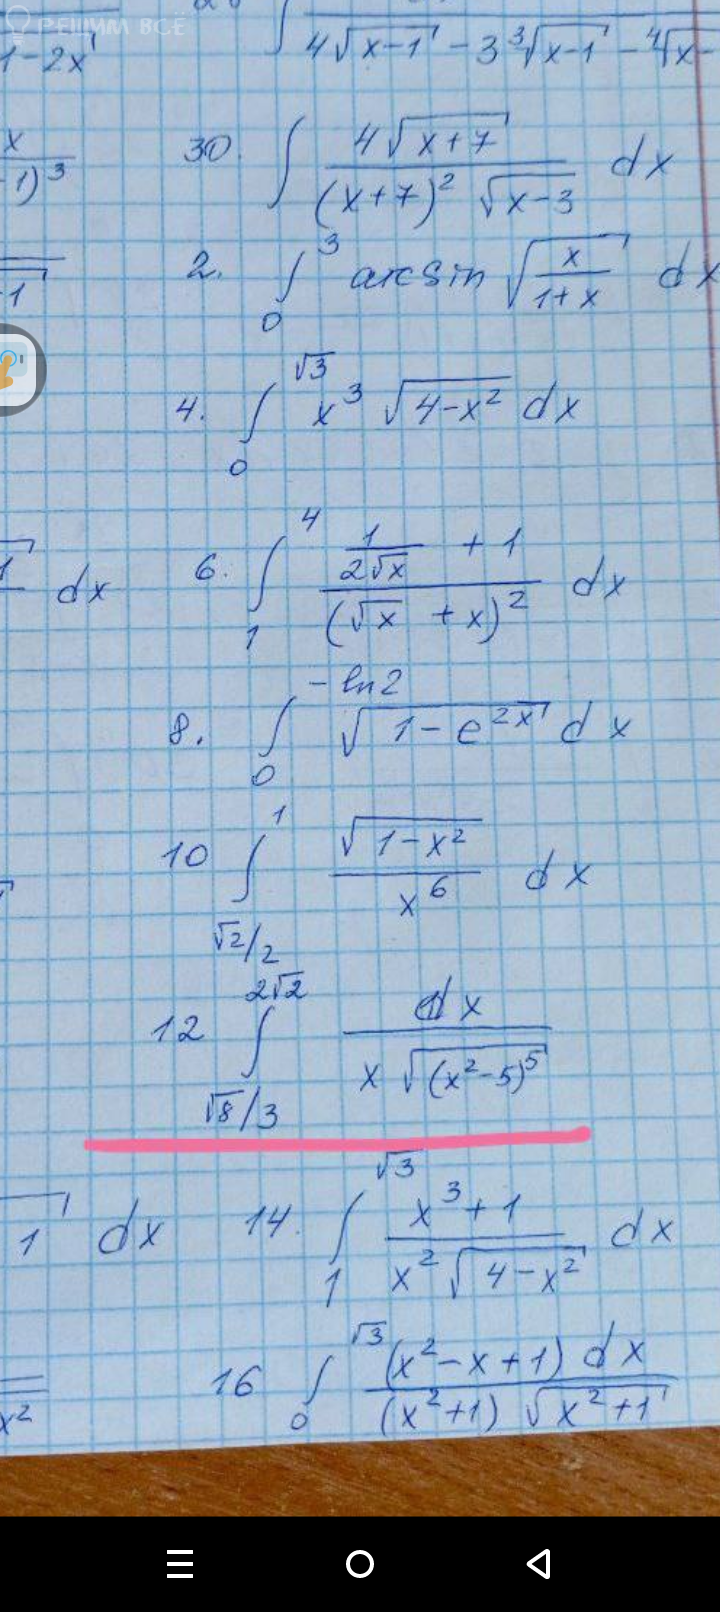 РЕШИМ ВСЁ
1-2x
4√(x-1) - 3∛(x-1) - ∜(x-
x
1)³
30. ∫ 4√(x+7) / ((x+7)² √(x-3)) dx
1
2. ∫₀³ arcsin √(x/(1+x)) dx
4. ∫₀^√3 x³ √(4-x²) dx
dx
6. ∫₁⁴ (1/(2√x) + 1) / (√x + x)² dx
8. ∫₀^(-ln2) √(1-e^(2x)) dx
10 ∫_(√2/2)^1 √(1-x²) / x⁶ dx
12 ∫_(√8/3)^(2√2) dx / (x √((x²-5)⁵))
1 dx
14. ∫₁^√3 (x³+1) / (x² √(4-x²)) dx
x²
16 ∫₀^√3 (x²-x+1) dx / ((x²+1) √(x²+1))